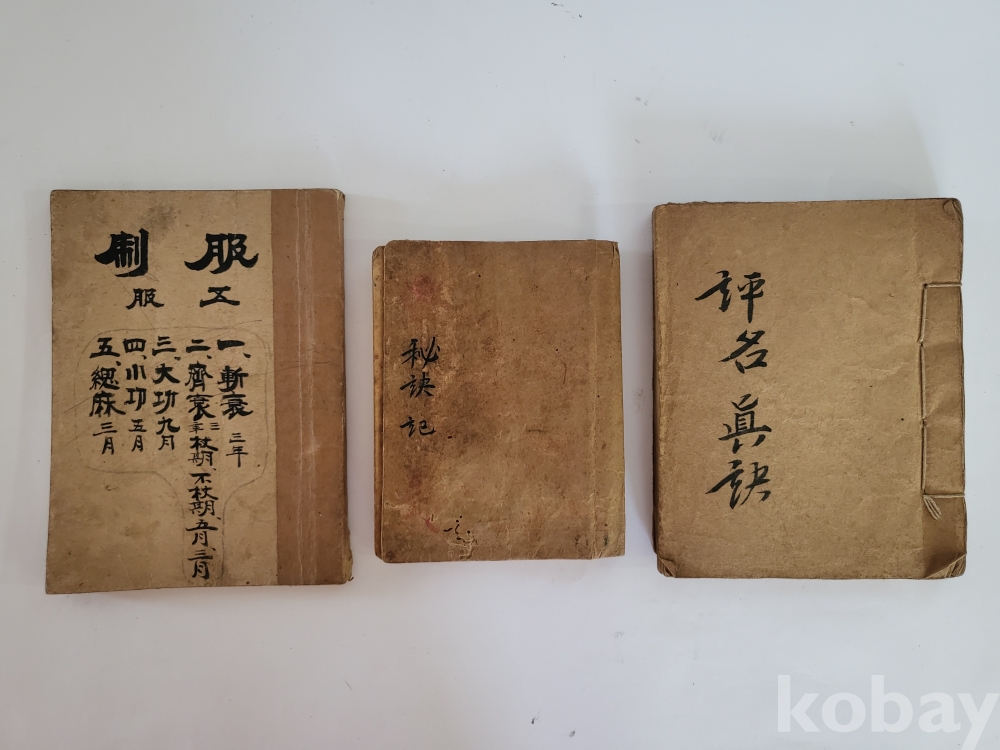 服制
五服
一、斬衰 三年
二、齊衰 三年 杖期、不杖期、五月、三月
三、大功 九月
四、小功 五月
五、緦麻 三月
秘訣記
評名眞訣
kobay